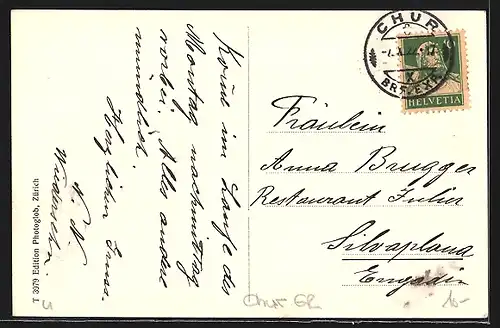 Komme im Laufe des
Montag nachmittag
vorbei. Alles andere
mündlich.
Herzlichen Gruss
A. W.
Wiedersehen.
T 3979 Edition Photoglob, Zürich
CHUR
BRF. EXP.
HELVETIA
Fräulein
Anna Brugger
Restaurant Julier
Silvaplana
Engadin
Chur GR
10-